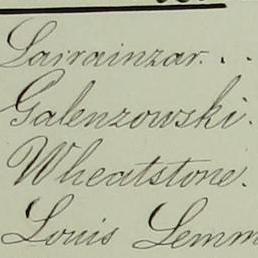 Lairainzar. . .
Galenzowski.
Wheatstone.
Louis Lemm